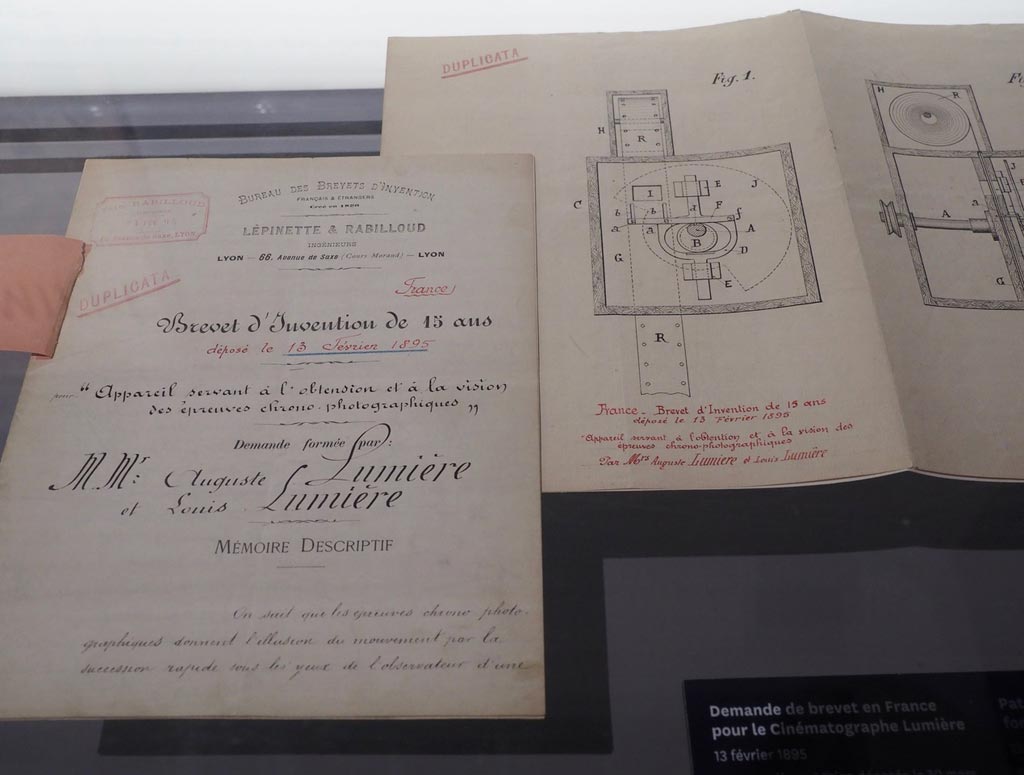 BUREAU DES BREVETS D'INVENTION
FRANÇAIS & ÉTRANGERS
Créé en
LÉPINETTE & RABILLOUD
INGÉNIEURS
LYON — 66, Avenue de Saxe (Cours Morand) — LYON
RABILLOUD
DUPLICATA
France
Brevet d'Invention de 15 ans
déposé le 13 Février 1895
pour "Appareil servant à l'obtension et à la vision
des épreuves chrono-photographiques"
Demande formée par:
M Mrs Auguste Lumière
et Louis Lumière
MÉMOIRE DESCRIPTIF
On sait que les épreuves chrono photo-
graphiques donnent l'illusion du mouvement par la
succession rapide sous les yeux de l'observateur d'une
DUPLICATA
Fig. 1.
H
R
C
I
E
J
b
b
d
F
f
a
a
A
B
D
G
E
R
France - Brevet d'Invention de 15 ans
déposé le 13 Février 1895
"Appareil servant à l'obtention et à la vision des
épreuves chrono-photographiques
Par Mrs Auguste Lumière et Louis Lumière
H
R
A
a
G
Demande de brevet en France
pour le Cinématographe Lumière
13 février 1895